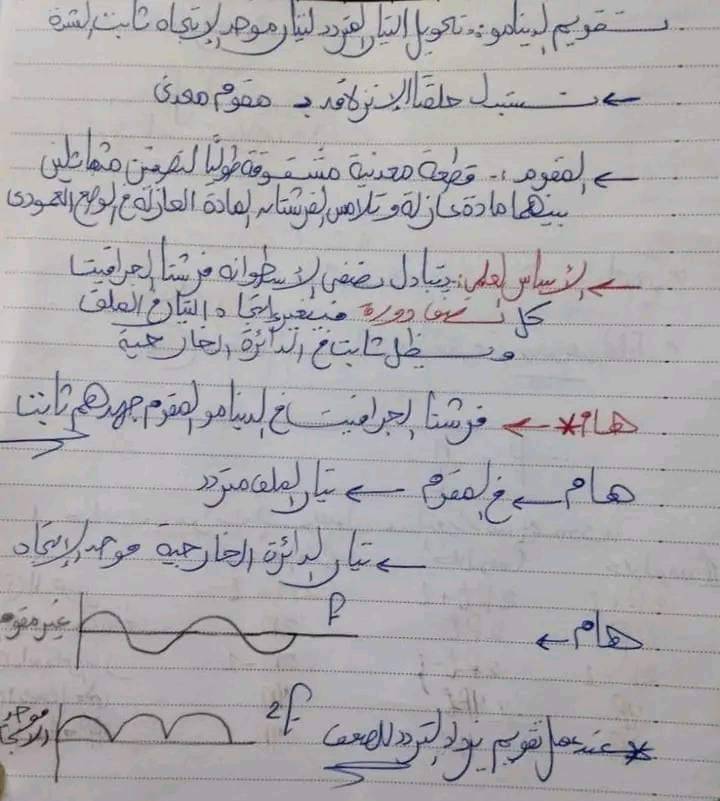 تقويم الدينامو :- تحويل التيار المتردد لتيار موحد الإتجاه ثابت الشدة
← تستبدل حلقتا الإنزلاق بـ مقوم معدنى
← المقوم :- قطعة معدنية مشقوقة طولياً لنصفين متماثلين
بينهما مادة عازلة وتلامس الفرشتان المادة العازلة فى الوضع العمودى
← الأساس العلمى: يتبادل نصفى الأسطوانة فرشتا الجرافيت
كل نصف دورة فيتغير اتجاه التيار فى الملف
ويظل ثابت فى الدائرة الخارجية
هام * ← فرشتا الجرافيت فى الدينامو المقوم جهدهم ثابت
هام ← فى المقوم ← تيار الملف متردد
← تيار الدائرة الخارجية موحد الإتجاه
هام ← f غير مقوم
* عند عمل تقويم يزداد التردد للضعف 2f موحد الاتجاه